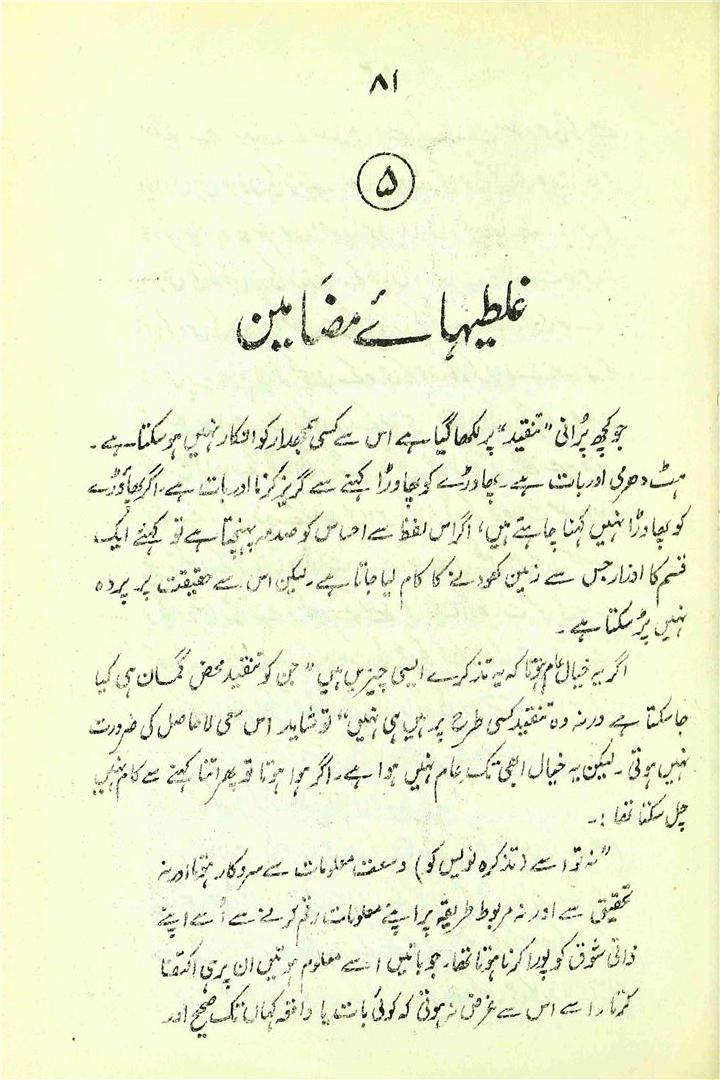 ۸۱
۵
غلطیہائے مضامین
جو کچھ پرُانی "تنقید" پر لکھا گیا ہے اس سے کسی سمجھدار کو انکار نہیں ہو سکتا ہے۔
ہٹ دھرمی اور بات ہے۔ پھاوڑے کو پھاوڑا کہنے سے گریز کرنا اور بات ہے۔ اگر پھاوڑے
کو پھاوڑا نہیں کہنا چاہتے ہیں، اگر اس لفظ سے احساس کو صدمہ پہنچتا ہے تو کہئے ایک
قسم کا اوزار جس سے زمین کھودنے کا کام لیا جاتا ہے۔ لیکن اس سے حقیقت پر پردہ
نہیں پڑ سکتا ہے۔
اگر یہ خیال عام ہوتا کہ یہ تذکرے ایسی چیزیں ہیں "جن کو تنقید محض گمان ہی کیا
جا سکتا ہے ورنہ وہ تنقید کسی طرح پر ہیں ہی نہیں" تو شاید اس سعی لاحاصل کی ضرورت
نہیں ہوتی۔ لیکن یہ خیال ابھی تک عام نہیں ہوا ہے۔ اگر ہوا ہوتا تو پھر اتنا کہنے سے کام نہیں
چل سکتا تھا :۔
"نہ تو اسے (تذکرہ نویس کو) وسعت معلومات سے سروکار ہوتا اور نہ
تحقیق سے اور نہ مربوط طریقہ پر اپنے معلومات رقم کرنے سے اُسے اپنے
ذاتی شوق کو پورا کرنا ہوتا تھا۔ جو باتیں اسے معلوم ہوتیں ان پر ہی اکتفا
کرتا۔ اسے اس سے غرض نہ ہوتی کہ کوئی بات یا واقعہ کہاں تک صحیح اور